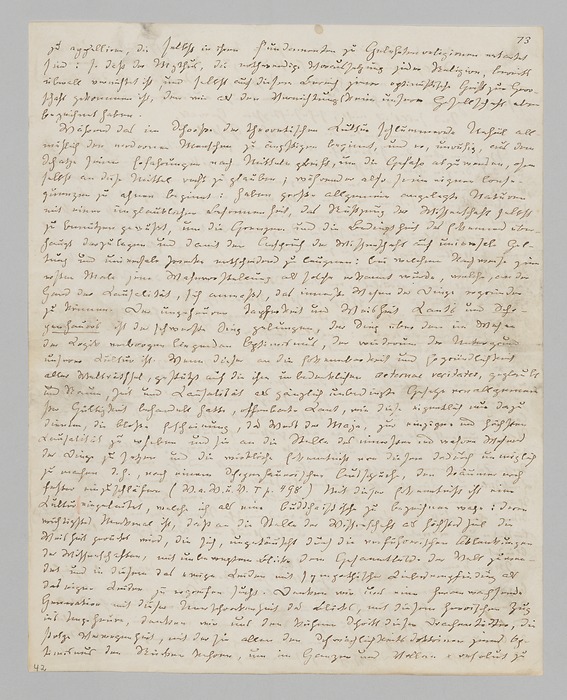 73
zu appelliren, die selbst in ihren Fundamenten zu Gelehrtenreligionen entartet
sind: so dass der Mythus, die nothwendige Voraussetzung jeder Religion, bereits
überall ist, und selbst auf diesem Bereich jener optimistische Geist zur Herr-
schaft gekommen ist, den wir als den Vernichtungskeim unserer Gesellschaft eben
bezeichnet haben.
Während das im Schoosse der theoretischen Kultur schlummernde Unheil all-
mählich den modernen Menschen zu ängstigen beginnt, und er, unruhig, aus dem
Schatze seiner Erfahrungen nach Mitteln greift, um die Gefahr abzuwenden, ohne
selbst an diese Mittel recht zu glauben; während er also seine eigenen Conse-
quenzen zu ahnen beginnt: haben grosse allgemein angelegte Naturen,
mit einer unglaublichen Besonnenheit, das Rüstzeug der Wissenschaft selbst
zu benützen gewusst, um die Grenzen und die Bedingtheit des Erkennens über-
haupt darzulegen und damit den Anspruch der Wissenschaft auf universale Gel-
tung und universale Zwecke entscheidend zu leugnen: bei welchem Nachweise zum
ersten Male jene Wahnvorstellung als solche erkannt wurde, welche, an der
Hand der Causalität, sich anmasst, das innerste Wesen der Dinge ergründen
zu können. Der ungeheuren Tapferkeit und Weisheit Kants und Scho-
penhauers ist der schwerste Sieg gelungen, der Sieg über den im Wesen
der Logik verborgen liegenden Optimismus, der wiederum der Untergrund
unserer Kultur ist. Wenn dieser an die Erkennbarkeit und Ergründlichkeit
aller Welträthsel, gestützt auf die ihm unbedenklichen aeternae veritates, geglaubt
und Raum, Zeit und Causalität als gänzlich unbedingte Gesetze von allgemein-
ster Gültigkeit behandelt hatte, offenbarte Kant, wie diese eigentlich nur dazu
dienten, die blosse Erscheinung, das Werk der Maja, zur einzigen und höchsten
Realität zu erheben und sie an die Stelle des innersten und wahren Wesens
der Dinge zu setzen und die wirkliche Erkenntniss von diesem dadurch unmöglich
zu machen, d. h., nach einem Schopenhauerischen Ausspruche, den Träumer noch
fester einzuschläfern (W. a. W. u. V. I p. 498) Mit dieser Erkenntniss ist eine
Kultur eingeleitet, welche ich als eine zu bezeichnen wage: deren
wichtigstes Merkmal ist, dass an die Stelle der Wissenschaft als höchstes Ziel die
Weisheit gerückt wird, die sich, ungetäuscht durch die verführerischen Ablenkungen
der Wissenschaften, mit unbewegtem Blicke dem Gesammtbilde der Welt zuwen-
det und in diesem das ewige Leiden mit sympathischer Liebesempfindung als
das eigne Leiden zu ergreifen sucht. Denken wir uns eine heranwachsende
Generation mit dieser Unerschrockenheit des Blicks, mit diesem heroischen Zug
ins Ungeheure, denken wir uns den kühnen Schritt dieser Drachentödter, die
stolze Verwegenheit, mit der sie allen den Schwächlichkeitsdoktrinen jenes Op-
timismus den Rücken kehren, um im Ganzen und Vollen resolut zu
42